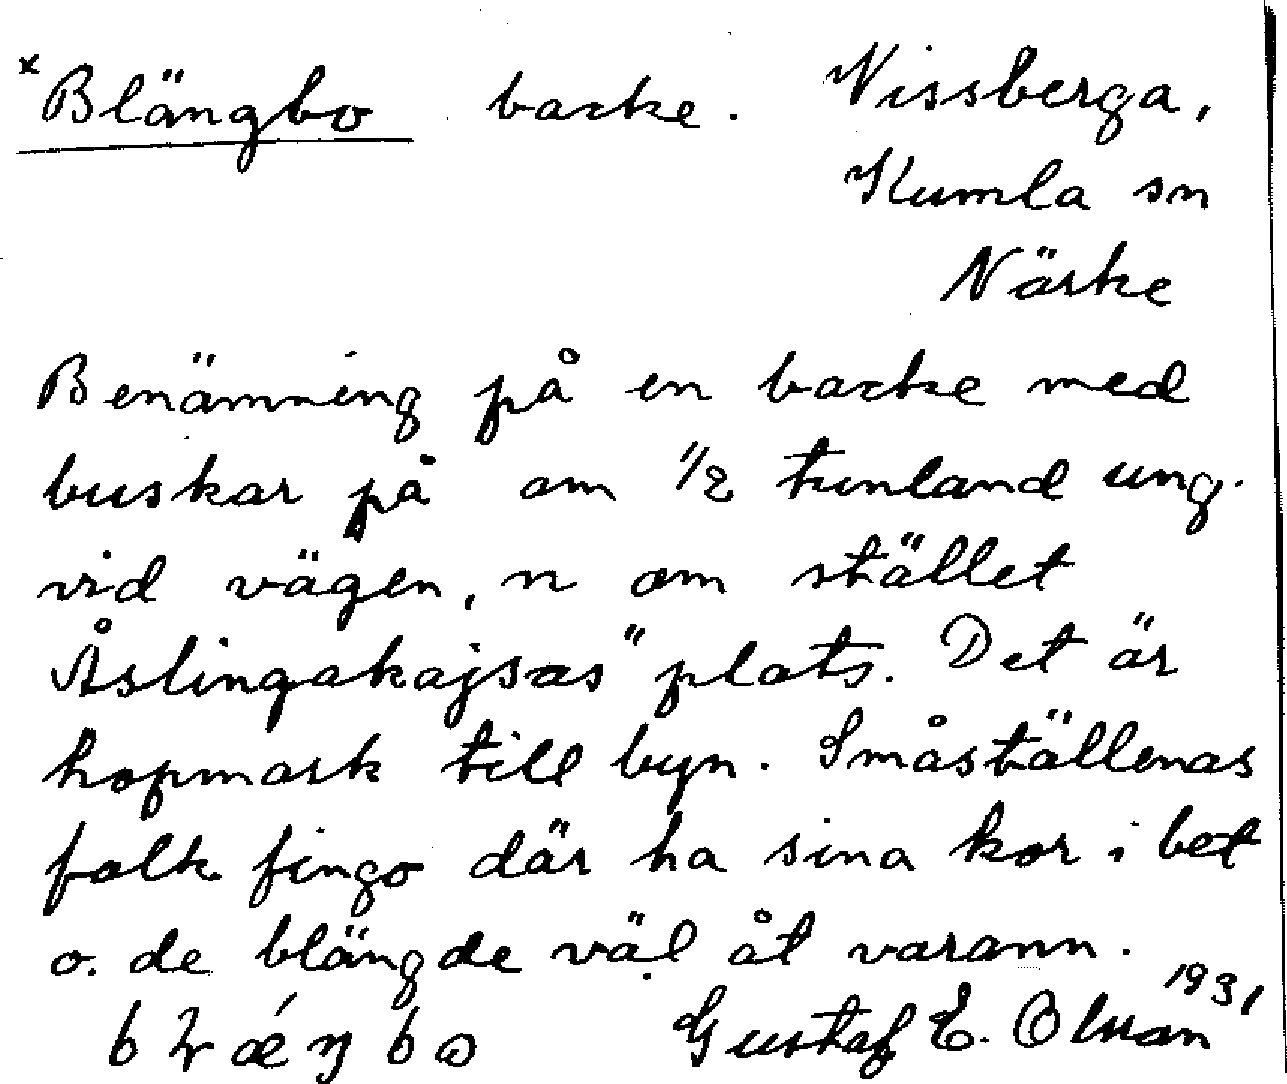 x Blängbo backe. Vissberga,
Kumla sn
Närke
Benämning på en backe med
buskar på om 1/2 tunland ung.
vid vägen, n om stället
Åslingakajsas" plats. Det är
hopmark till byn. Småställenas
folk fingo där ha sina kor i bet
o. de blängde väl åt varann.
Gustaf E. Olsson 1931